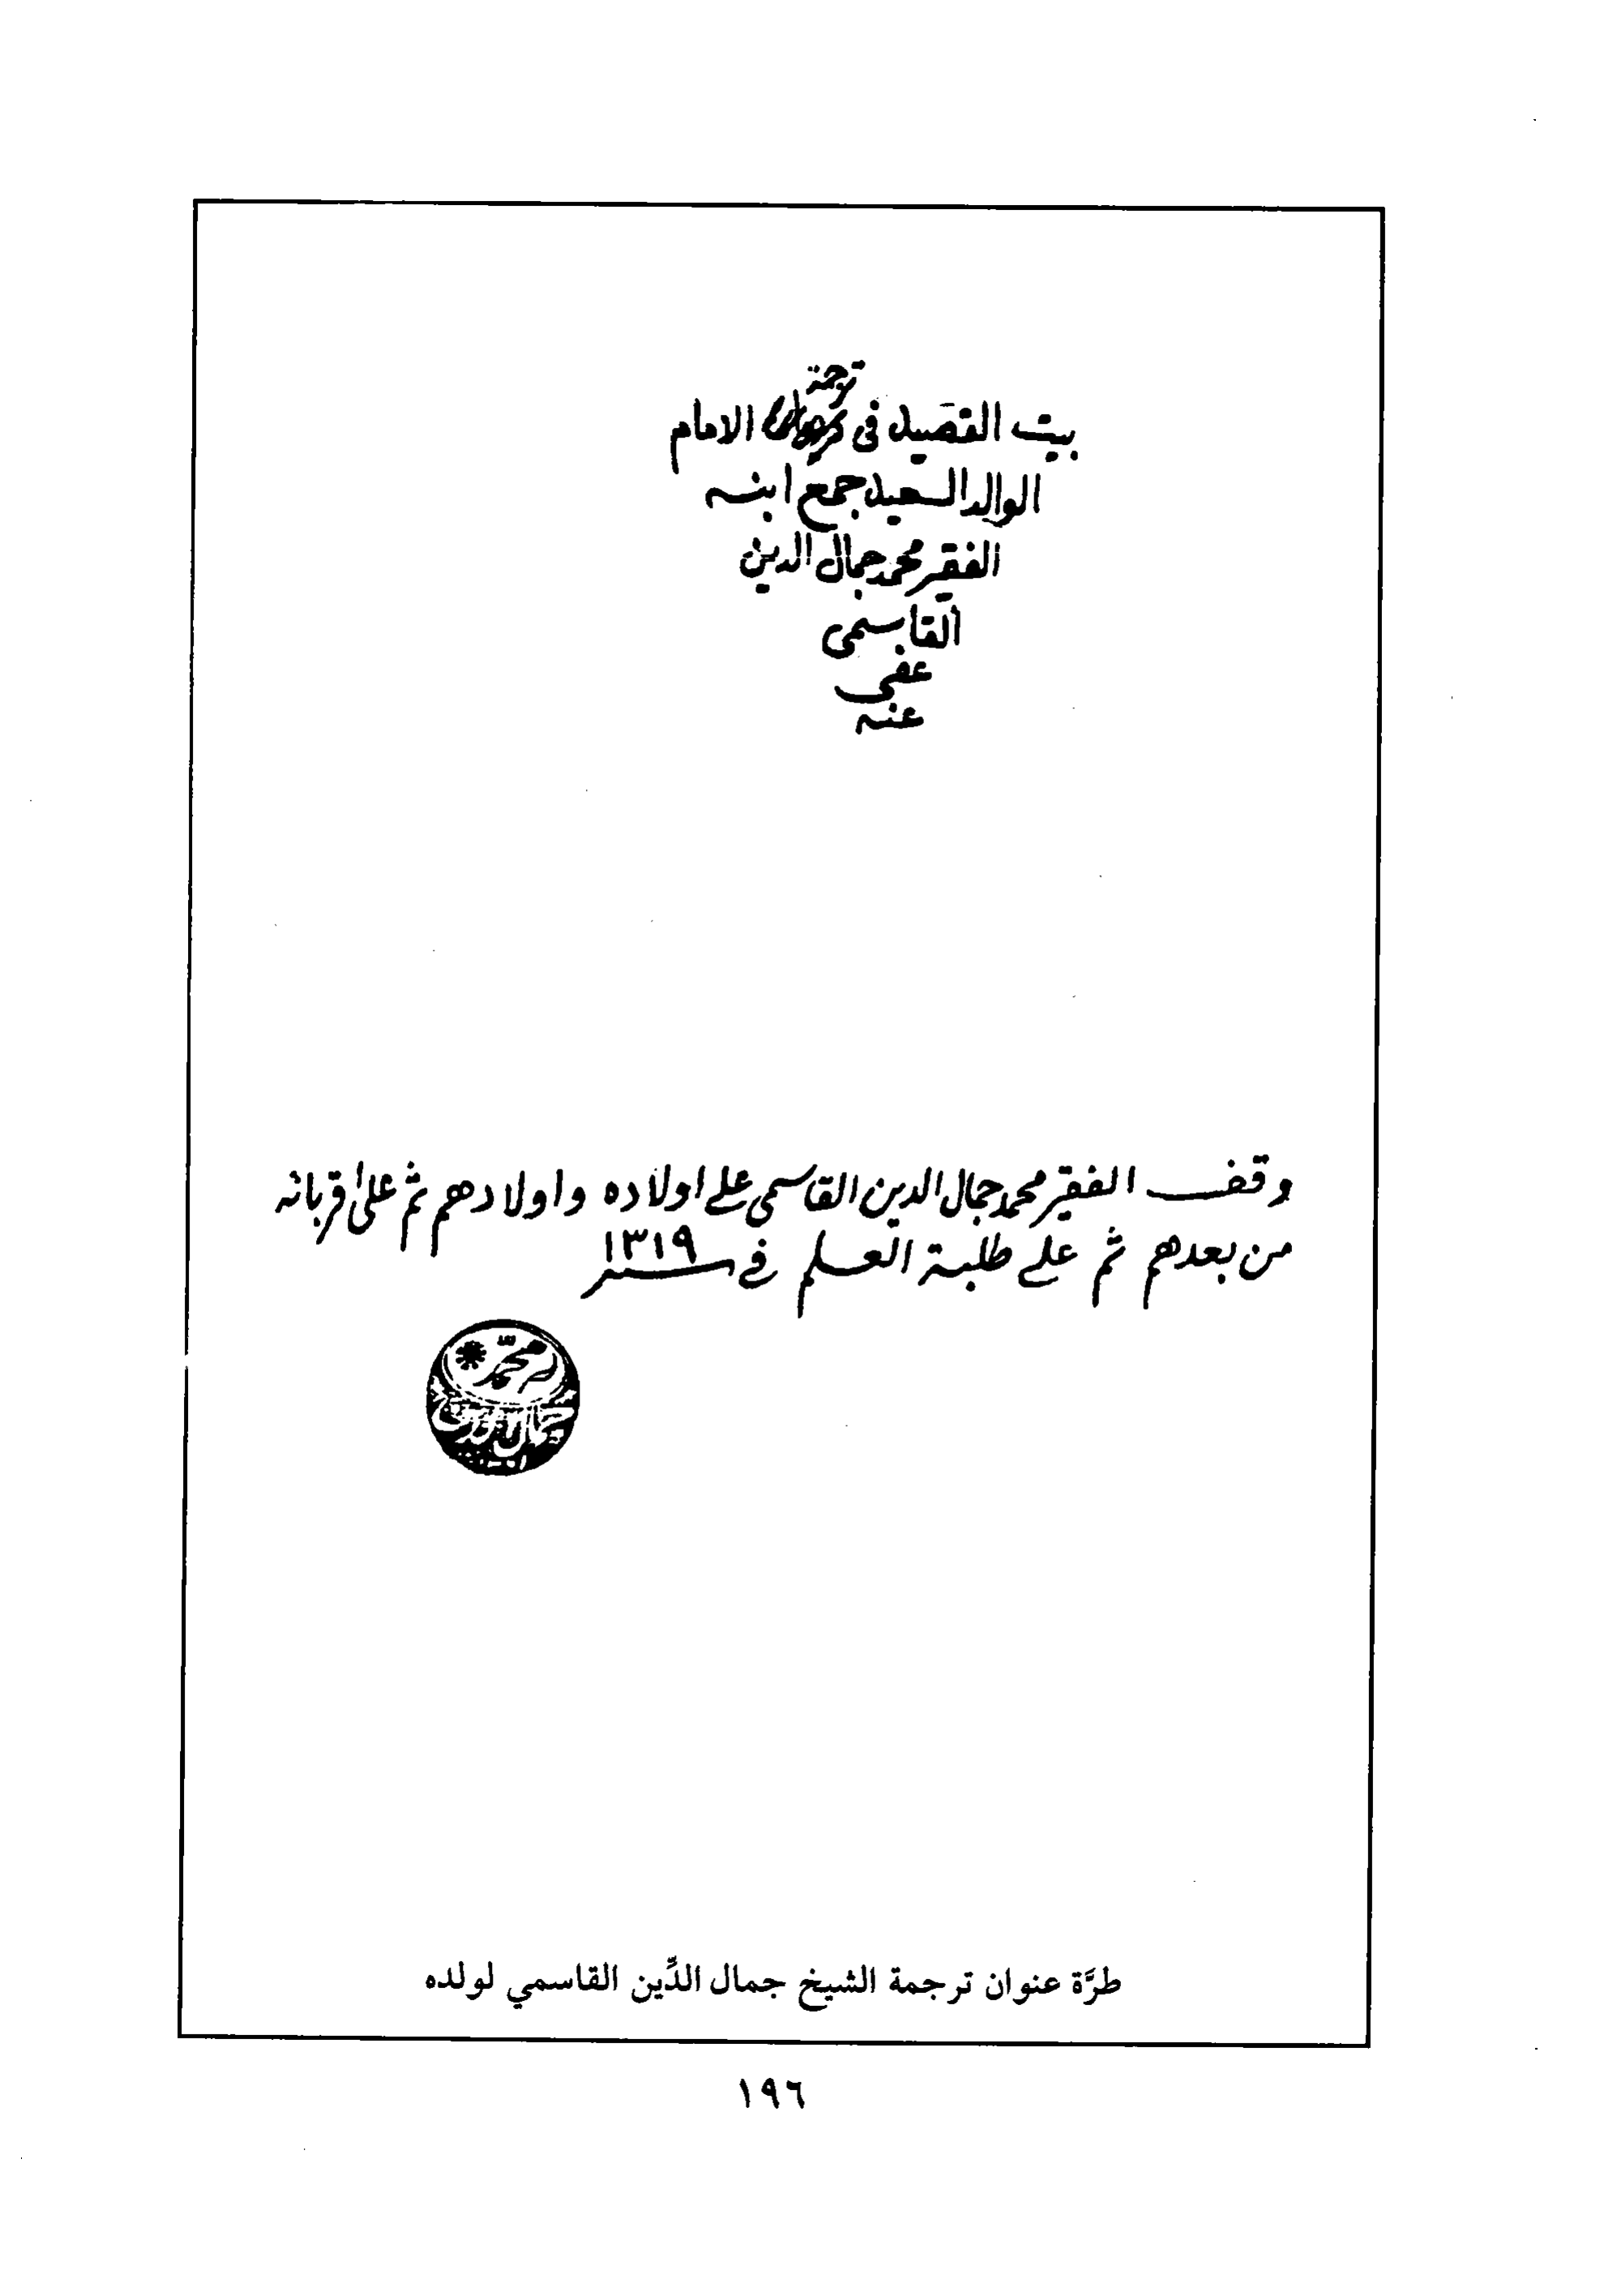 ترجمة
بيت القصيد في الامام
الوالد السعيد جمع ابنه
الفقير محمد جمال الدين
القاسمى
عفى
عنه
وقف الفقير محمد جمال الدين القاسمي على اولاده واولادهم ثم على اقربائه
من بعدهم ثم على طلبة العلم في سنة ١٣١٩
محمد
جمال الدين
طرَّة عنوان ترجمة الشيخ جمال الدِّين القاسمي لولده
١٩٦